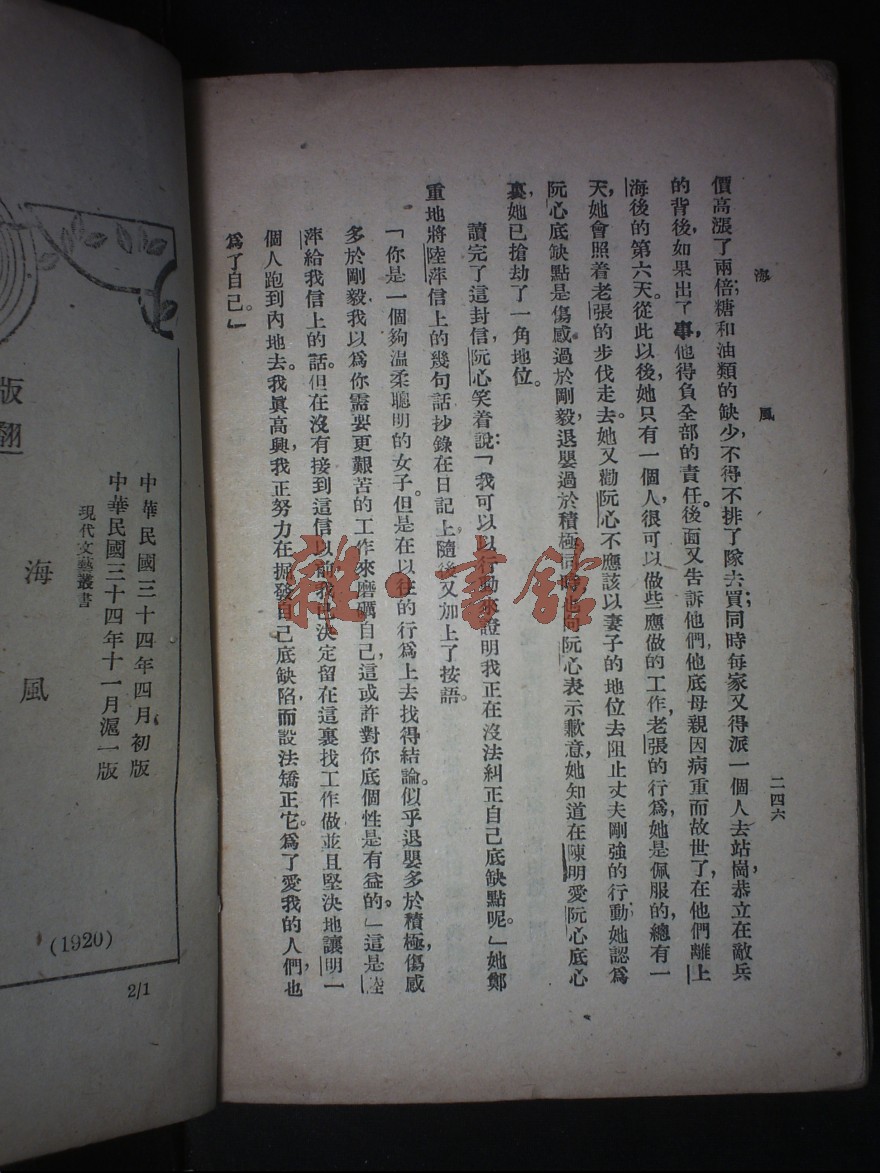 海風
二四六
價高漲了兩倍；糖和油類的缺少，不得不排了隊去買；同時每家又得派一個人去站崗，恭立在敵兵
的背後，如果出了事，他得負全部的責任。後面又告訴他們，他底母親因病重而故世了，在他們離上
海後的第六天。從此以後，她只有一個人，很可以做些應做的工作，老張的行爲，她是佩服的，總有一
天，她會照着老張的步伐走去。她又勸阮心不應該以妻子的地位去阻止丈夫剛強的行動，她認爲
阮心底缺點是傷感過於剛毅，退嬰過於積極。同時，也向阮心表示歉意，她知道在陳明愛阮心底心
裏，她已搶劫了一角地位。
讀完了這封信，阮心笑着說：「我可以以行動來證明我正在設法糾正自己底缺點呢。」她鄭
重地將陸萍信上的幾句話抄錄在日記上，隨後又加上了按語。
「你是一個夠温柔聰明的女子，但是在以往的行爲上去找得結論。似乎退嬰多於積極，傷感
多於剛毅，我以爲你需要更艱苦的工作來磨礪自己，這或許對你底個性是有益的。」這是陸
萍給我信上的話。但在沒有接到這信以前，我已決定留在這裏找工作做，並且堅決地讓明一
個人跑到內地去。我眞高興，我正努力在掘發自己底缺陷，而設法矯正它。爲了愛我的人們，也
爲了自己。」
雜·書館
版翻
中華民國三十四年四月初版
中華民國三十四年十一月滬一版
現代文藝叢書
海風
(1920)
2/1